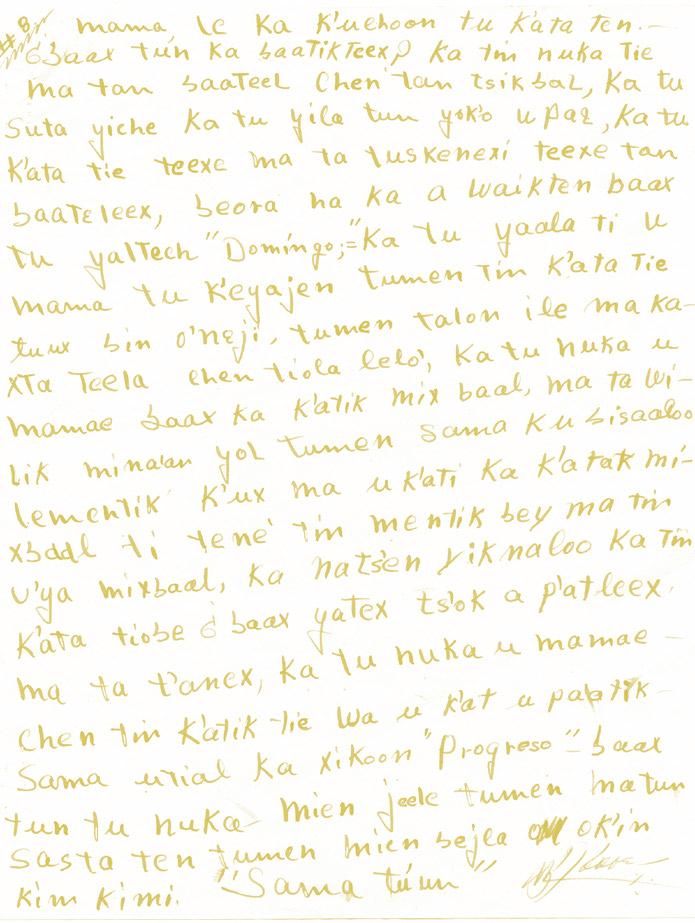 #8 mama le ka k'uchoon tu k'ata ten.-
¿baax tún ka baatikteex? ka tin nuka tie
ma tan baateel chen tan tsikbal, ka tu
suta yiche ka tu yila tun yok'o u paal, ka tu
k'ata tie teexe ma ta tuskenexi teexe tan
baateleex, beora na ka a waikten baax
tu yaltech "Domingo;="ka tu yaala ti u
mama tu k'eyajen tumen tin k'ata tie
tuux bin o'neji, tumen talon ile ma ka-
xta teela chen tiola lelo', ka tu nuka u
mamae baax ka k'atik mix baal, ma ta wi-
lik mina'an yol tumen sama ku bisaaloo
lementik k'ux ma u k'ati ka k'atak mi-
xbaal ti tene' tin mentik bey ma tin
u'ya mixbaal, ka natsen yiknaloo ka tin
k'ata tiobe ¿baax yatex ts'ok a p'atleex.
ma ta t'anex, ka tu nuka u mamae -
chen tin k'atik tie wa u k'at u paatik
sama utial ka xikoon "Progreso"- baax
tun tu nuka- mien jeele tumen matun
sasta ten tumen mien bejla ok'in
kim kimi. "Sama túun"